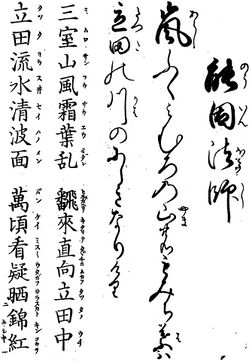 能因法師
嵐ふくみむろの山のもみち葉ハ
立田の川のにしきなりけり
三室山風霜葉乱 飜來直向立田中
立田流水清波面 萬頃看疑晒錦紅